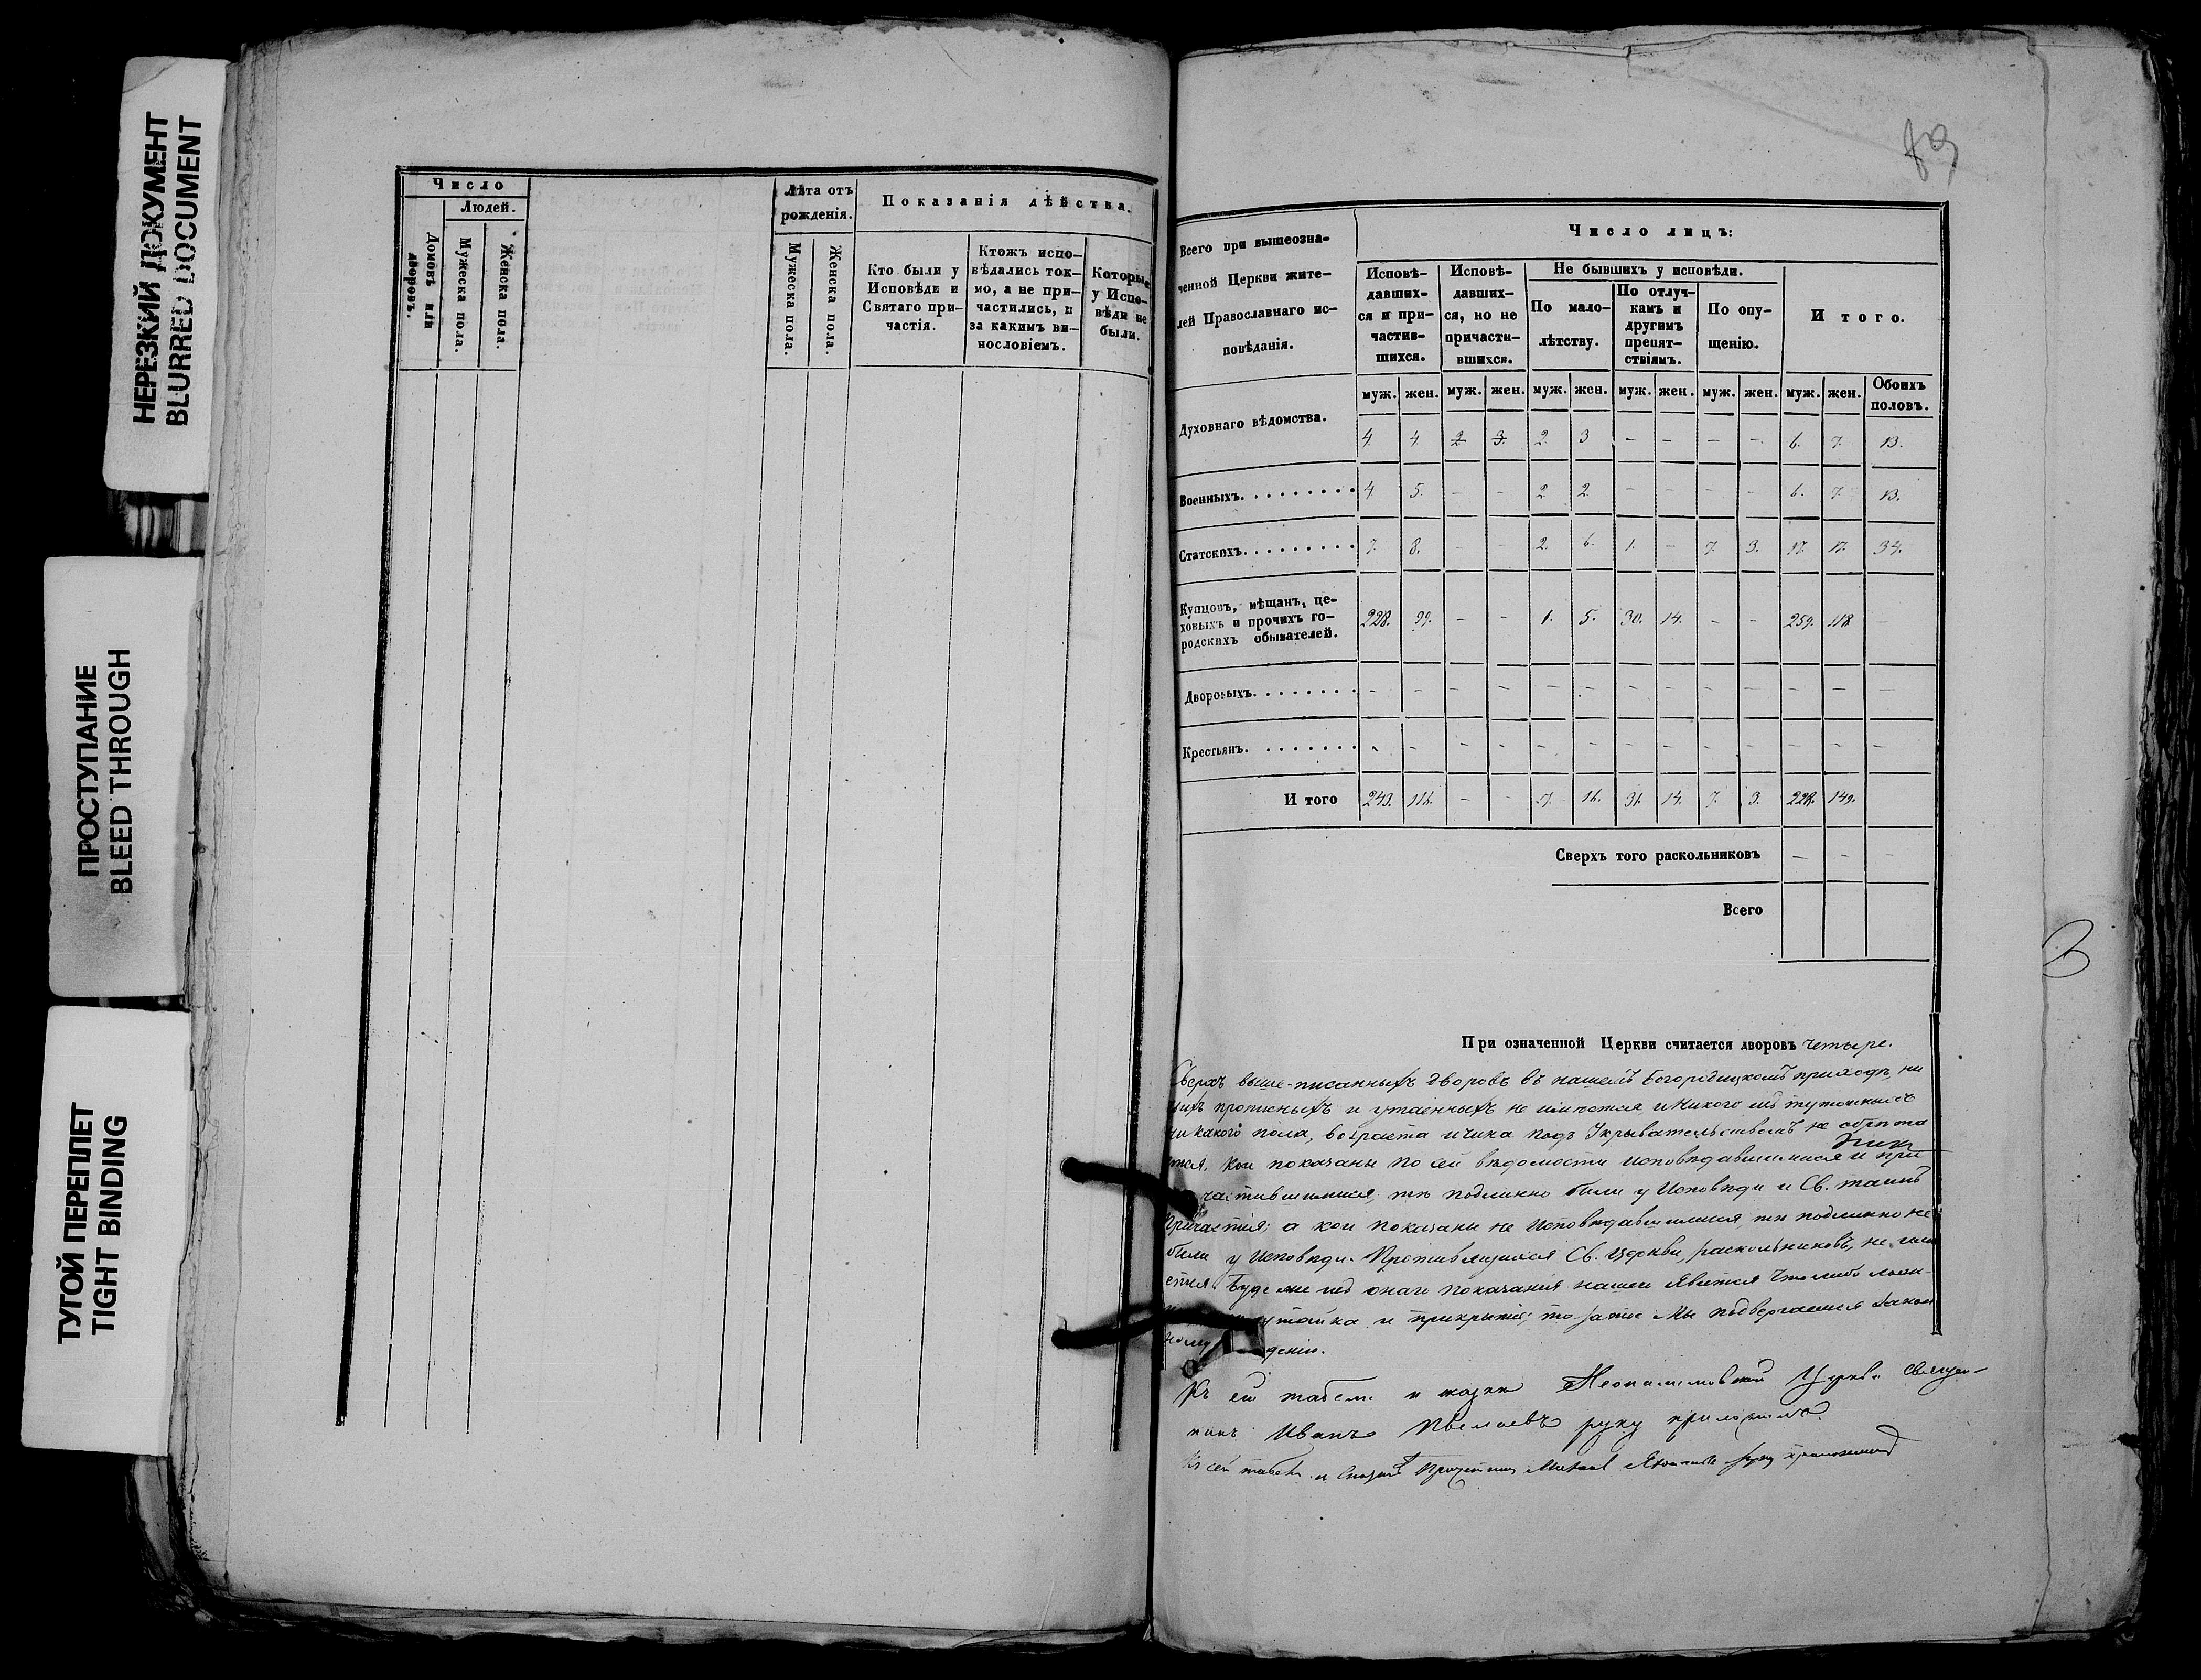 НЕРЕЗКИЙ ДОКУМЕНТ
BLURRED DOCUMENT
ПРОСТУПАНИЕ
BLEED THROUGH
ТУГОЙ ПЕРЕПЛЕТ
TIGHT BINDING
Число
Людей.
Домовъ или дворовъ.
Мужеска пола.
Женска пола.
Лѣта отъ
рожденія.
Мужеска пола.
Женска пола.
Показанія дѣйства.
Кто были у
Исповѣди и
Святаго при-
частія.
Ктожъ испо-
вѣдались ток-
мо, а не при-
частились, и
за какимъ ви-
нословіемъ.
Которые
у Испо-
вѣди не
были.
89
Всего при вышеозна-
ченной Церкви жите-
лей Православнаго ис-
повѣданія.
Число лицъ:
Исповѣ-
давших-
ся и при-
частив-
шихся.
Исповѣ-
давших-
ся, но не
причасти-
вшихся.
Не бывшихъ у исповѣди.
По мало-
лѣтству.
По отлуч-
камъ и
другимъ
препят-
ствіямъ.
По опу-
щенію.
Итого.
муж. жен. муж. жен. муж. жен. муж. жен. муж. жен. муж. жен. Обоихъ половъ.
Духовнаго вѣдомства. 4. 4 2 3. 2. 3 – – – – 6. 7. 13.
Военныхъ. 4 5. – – 2 2 – – – – 6. 7. 13.
Статскихъ. 7. 8. – – 2. 6. 1. – 7. 3. 17. 17. 34.
Купцовъ, мѣщанъ, це-
ховыхъ и прочихъ го-
родскихъ обывателей. 228. 99. – – 1. 5. 30. 14. – – 259. 118 –
Дворовыхъ. – – – – – – – – – – – – –
Крестьянъ. – – – – – – – – – – – – –
И того 243. 116. – – 7. 16. 31. 14. 7. 3. 149.
Сверхъ того раскольниковъ – – –
Всего
При означенной Церкви считается дворовъ четыре.
Сверхъ выше-писанныхъ дворовъ въ нашемъ Богородицкомъ приходѣ, ни
прописныхъ и утаенныхъ не имѣется и никого
никакого пола, возраста и чина подъ укрывательствомъ не обрѣта
ется. Кои показаны по сей вѣдомости исповѣдавшимися и при
частившимися, тѣ подлинно были у Исповѣди и Св. таинъ
Причастія; а кои показаны не исповѣдавшимися, тѣ подлинно не
были у Исповѣди. Противляющихся Св. Церкви, раскольниковъ, не имѣ
ется. Буде же изъ онаго показанія нашего явится что либо
утайка и прикрытіе, то за то мы подвергаемся закон
ному
Къ сей табели и Церкви Священ-
никъ Иванъ руку приложилъ.
Къ сей табели и руку приложилъ